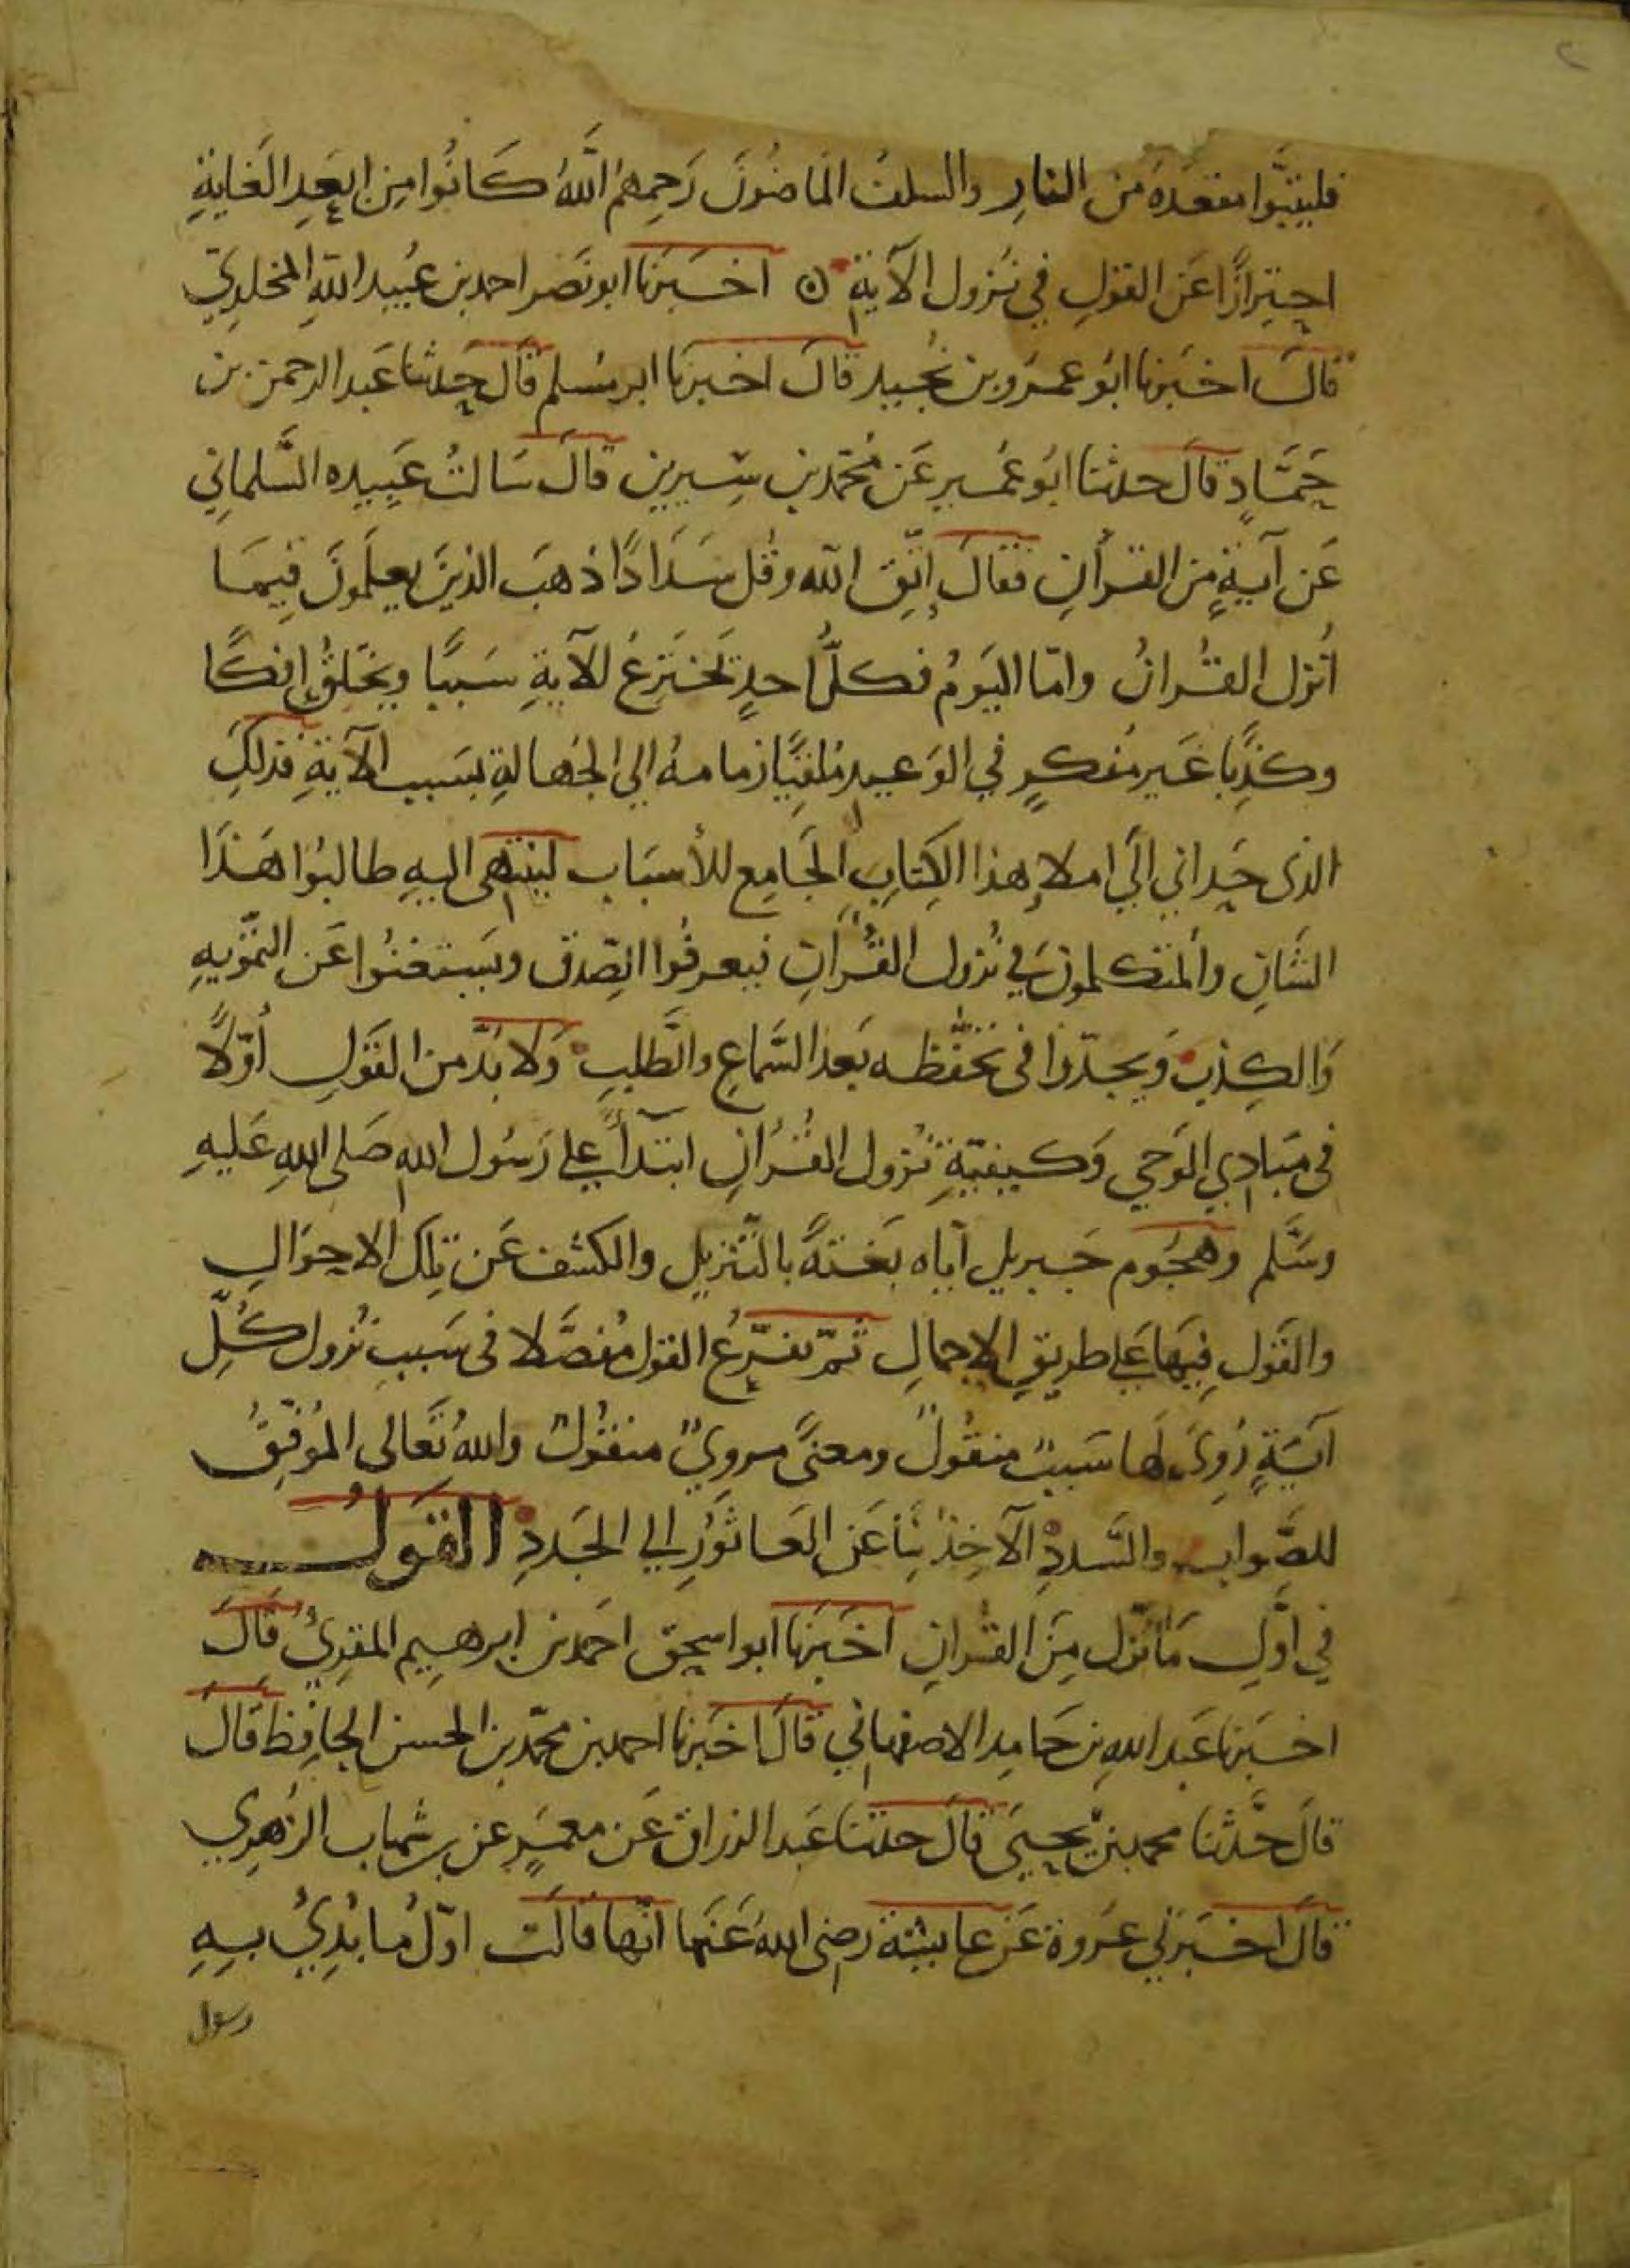 ٢
فليتبَّوا مقعدَهُ من النارِ والسلفُ الماضُونَ رَحِمهمُ اللَّهُ كَانُوا مِن ابعَدِ الغَايةِ
احتِرازًا عَن القولِ في نزُول الآيةِ ۞ اخبَرنا ابو نَصر احمد بن عُبيد اللهِ المخلدِيّ
قالَ اخبَرنا ابُو عمرو بن نُجيد قالَ اخبرنَا ابو مُسلم قالَ حدثنا عَبد الرحمن بن
حَمَّادٍ قالَ حدثنا ابُو عُمَير عَن مُحمّد بن سِيرين قالَ سَالتُ عَبِيده السَّلماني
عَن آيةٍ مِن القرأن فقالَ إتّقِ الله وقُل سَدَادًا ذهبَ الذينَ يعلَمونَ فِيمَا
أُنزل القُرانُ وامّا اليَومُ فكلُّ احدٍ تخترِعُ للآيةِ سَببًا ويخلقُ إفكًا
وكذِبًا غَير مُفكرٍ في الوَعيد مُلقيًا زمامهُ الي الجَهالةِ بسَبب الآيةِ فذلكَ
الذى حَداني الَي املاءِ هذا الكِتابِ الجَامِع للأسبَاب لينتهى اليهِ طالبُوا هَذَا
الشَانِ والمتكلمونَ في نُزول القُرآنِ فيعرفُوا الصِّدقَ ويَستغنُوا عَن التَموّيهِ
وَالكِذبِ وَيجدّوا فى تحَفّظه بَعد السَّماعِ والطَّلبِ وَلا بدَّ من القَولِ أوّلًا
فى مَبادِي الوَحي وَكيفيّةِ نزُول القُرْانِ ابتدآءً علي رَسُول اللهِ صَلى اللهِ عَليهِ
وسَّلم وهجُوم جَبريل اياه بَغتةً بالتَّنزيل والكشف عَن تِلكَ الاحوَالِ
والقَولِ فيهَا عَلي طريقِ الاجمالِ ثمّ نفرّعُ القول مُفصَّلا فى سَببِ نزُول كُلِّ
آيَةٍ رُوِىَ لَها سَببٌ منقُولٌ ومعنًى مروِيٌ منقُولٌ واللهُ تعَالى المُوَفّقُ
للصَّوابِ والسَّدادِ الآخِذُ بنَا عَن العَاثُورِ الي الجَدَدِ القَولُ
في اوَّلِ مَا نزَل مِنَ القرانِ اخبَرنا ابو اسحق احمَد بن ابرهيم المقرِيُ قالَ
اخبَرنا عَبد اللهِ بن حَامِد الاصفهاني قالَ اخبَرنا احمد بن محمّد بن الحسن الحافِظ قالَ
قالَ حدَّثنا محمد بن يحيَى قالَ حدثنا عَبد الرزاق عَن معمَرٍ عن بن شهاب الزهرِي
قالَ اخبَرني عروة عَن عايشة رضى اللهُ عَنها انّها قالَت اوّلُ مَا بُدِيُ بهِ
رسول